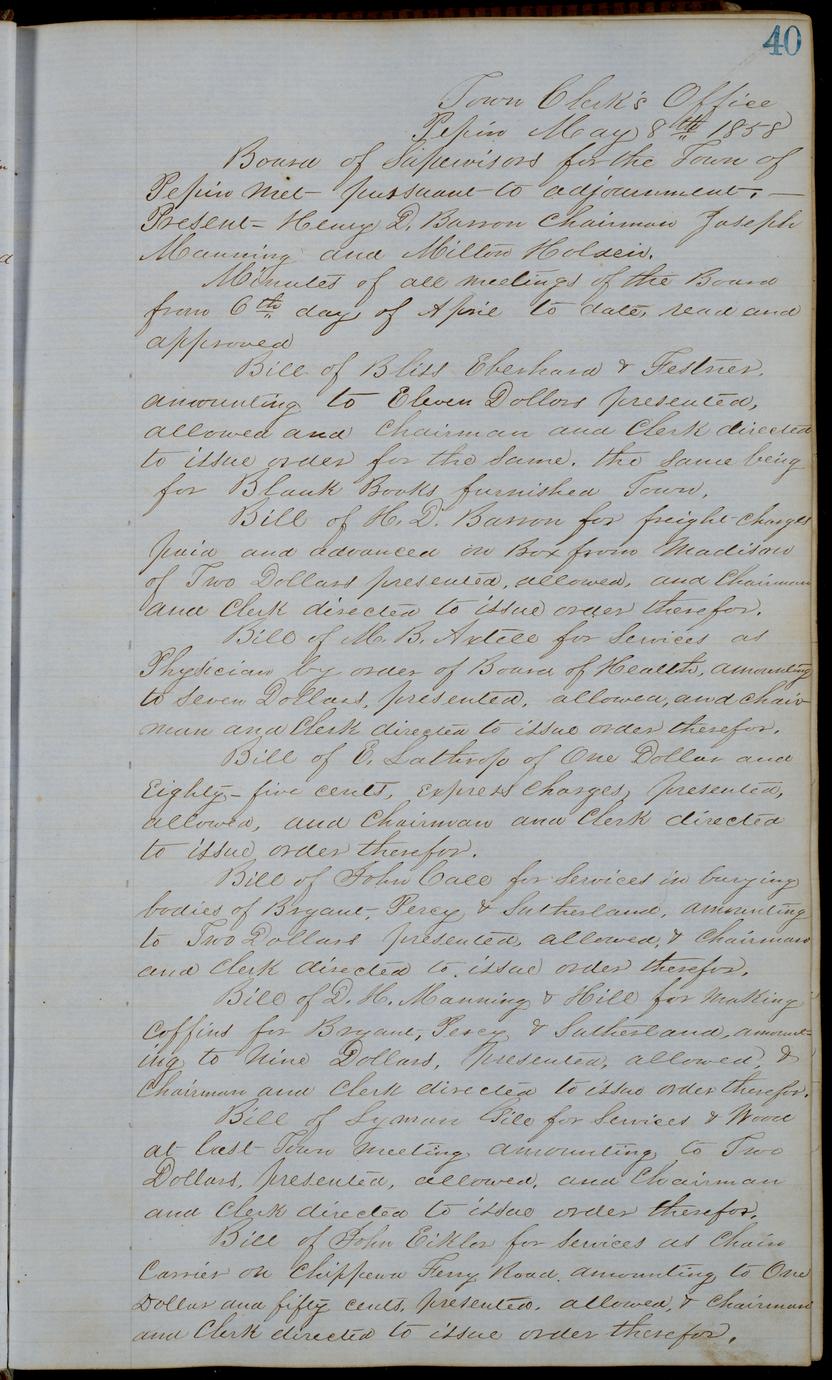 40
Town Clerk's Office
Pepin May 8th 1858
Board of Supervisors for the Town of
Pepin met pursuant to adjournment, —
Present – Henry D. Barron Chairman Joseph
Manning and Milton Holden.
Minutes of all meetings of the Board
from 6th day of April to date, read and
approved
Bill of Bliss Eberhard & Festner,
amounting to Eleven Dollars presented,
allowed and Chairman and Clerk directed
to issue order for the same. the same being
for Blank Books furnished Town,
Bill of H. D. Barron for freight charges
paid and advanced on Box from Madison
of Two Dollars presented, allowed, and Chairman
and Clerk directed to issue order therefor.
Bill of M. B. Axtell for Services as
Physician by order of Board of Health, amounting
to Seven Dollars, presented, allowed, and chair-
man and Clerk directed to issue order therefor.
Bill of E. Lathrop of One Dollar and
Eighty-five cents, express charges, presented,
allowed, and Chairman and Clerk directed
to issue order therefor.
Bill of John Call for Services in burying
bodies of Bryant, Percy & Sutherland, amounting
to Two Dollars presented, allowed, & Chairman
and Clerk directed to issue order therefor,
Bill of D. H. Manning & Hill for making
coffins for Bryant, Percy & Sutherland, amount-
ing to Nine Dollars, presented, allowed, &
Chairman and Clerk directed to issue order therefor.
Bill of Lyman for Services & Wood
at last Town meeting amounting to Two
Dollars, presented, allowed, and Chairman
and Clerk directed to issue order therefor,
Bill of John Eikler for Services as Chain
Carrier on Chippewa Ferry Road, amounting to One
Dollar and fifty cents, presented, allowed, & Chairman
and Clerk directed to issue order therefor.